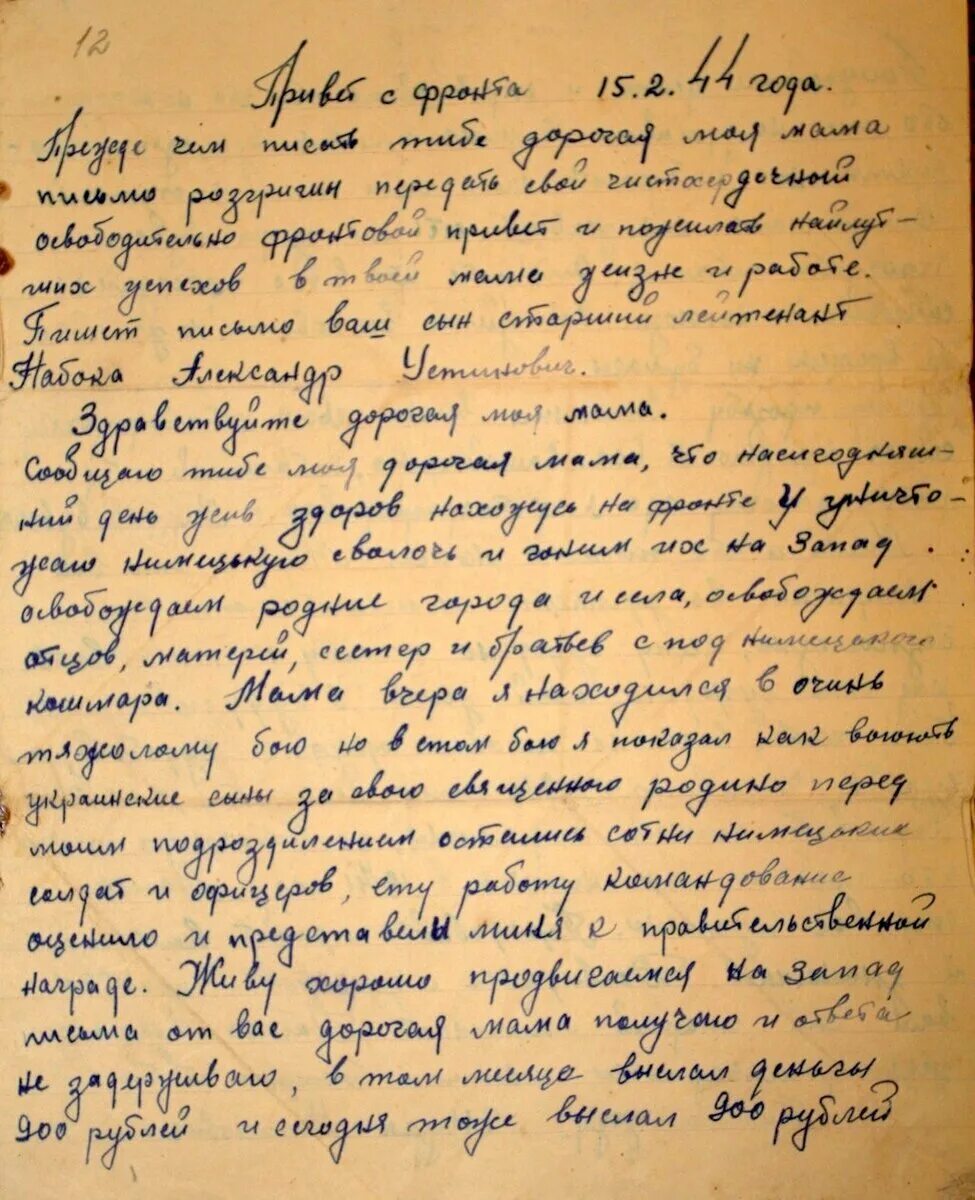 12
Привет с фронта 15.2.44 года.
Прежде чем писать тибе дорогая моя мама
письмо розгришин передать свой чистосердечный
освободительно фронтовой привет и пожилать найлут-
ших успехов в твоей мама жизне и работе.
Пишет письмо ваш сын старший лейтенант
Набока Александр Устинович.
Здравствуйте дорогая моя мама.
Сообщаю тибе моя дорогая мама, что насигодняш-
ний день жив здоров нахожусь на фронте и уничто-
жаю нимецькую сволочь и гоним их на Запад.
освобождаем родние города и села, освобождаем
отцов, матерей, сестер и братьев с под нимецького
кошмара. Мама вчера я находился в очинь
тяжолому бою но в етом бою я показал как воюють
украинские сыны за свою священную родину перед
моим подроздилением остались сотни нимецьких
солдат и офицеров, ету работу командование
оценило и представелы миня к правительственной
награде. Живу хорошо продвигаемся на запад
письма от вас дорогая мама получаю и ответа
не задерживаю, в том месяце выслал деньгы
900 рублей и сегодня тоже выслал 900 рублей